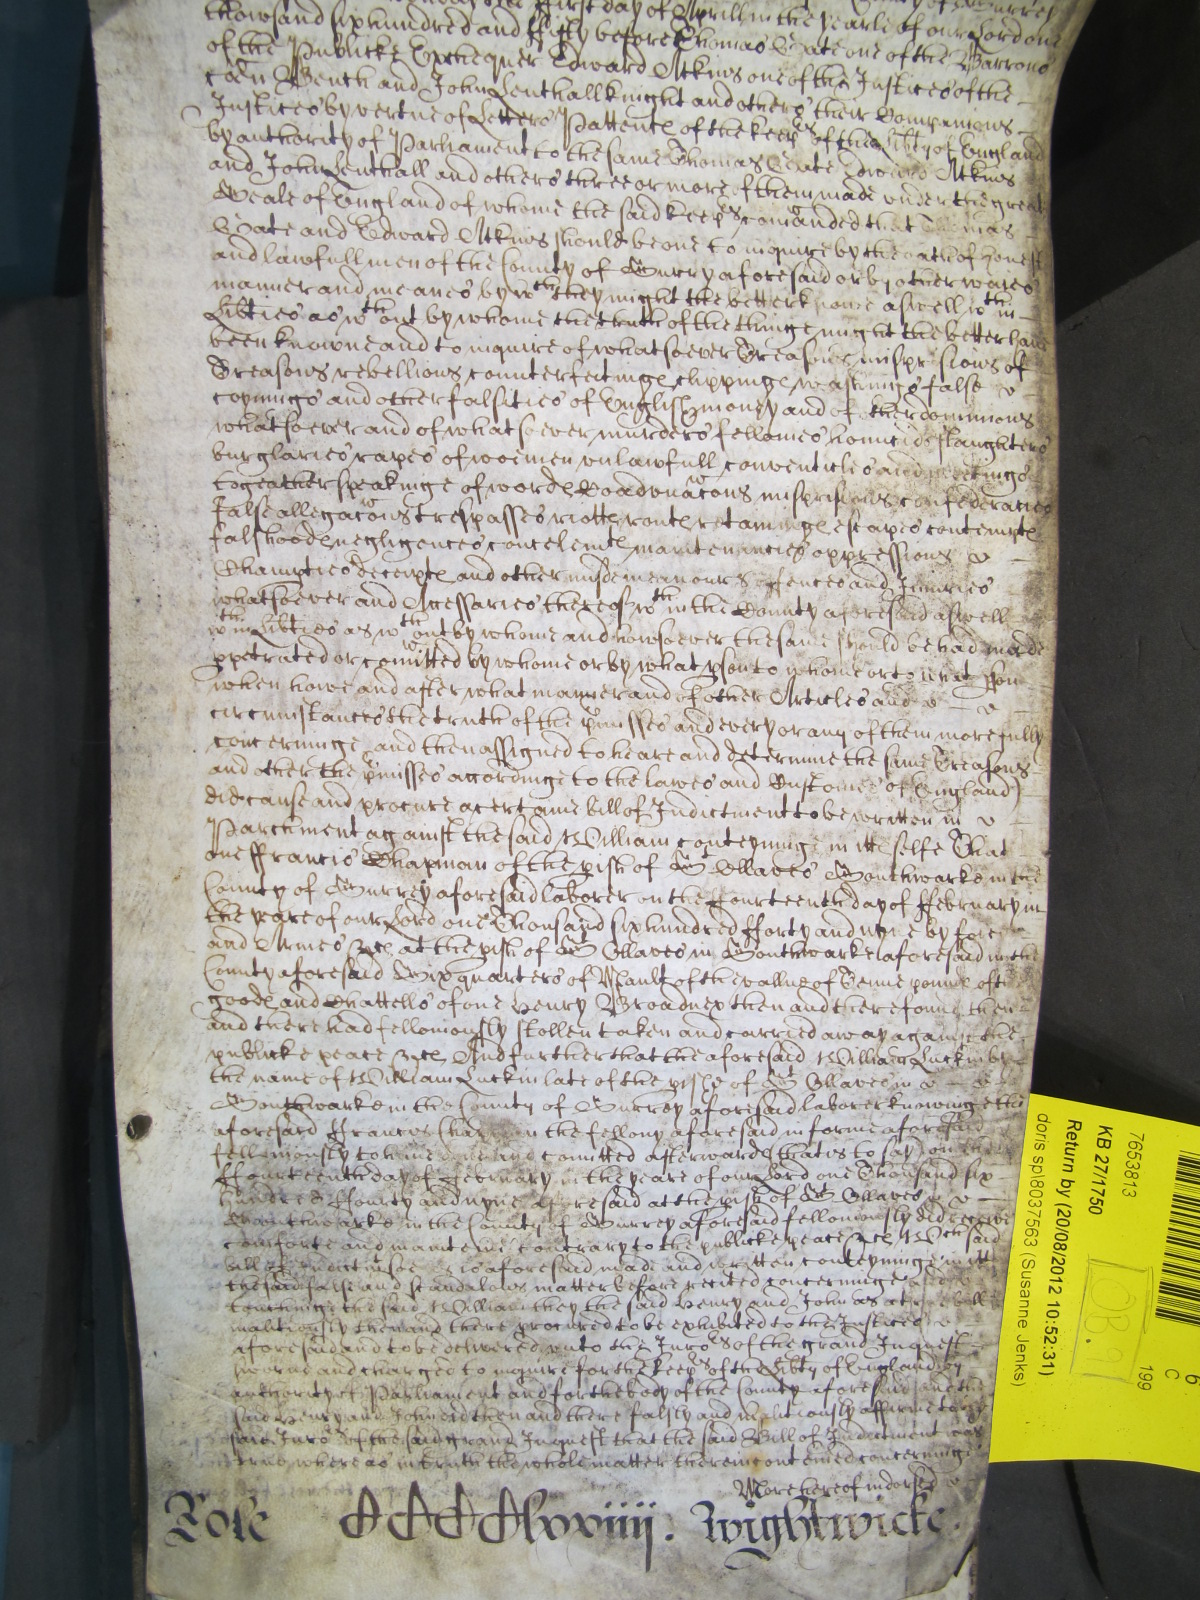 first day of Aprill in the yeare of our Lord one
thowsand six hundred and ffifty before Thomas Gate one of the Barrons
of the Publicke Exchequer Edward Atkins one of the Justices of the
Bench and John Lenthall knight and others their Companions
Justices by vertue of Letters Pattents of the keeprs of the libty of England
by authority of Parliament to the same Thomas Gate Edward Atkins
and John Lenthall and others three or more of them made under the great
Seale of England of whome the said keeprs comanded that Thomas
Gate and Edward Atkins should be one to inquire by the oath of honest
and lawfull men of the County of Surry aforesaid or by other waies
manner and meanes by wch they might the better knowe aswell wthin
Libties as wthout by whome the truth of the thinge might the better have
been knowne and to inquire of whatsoever Treasons misprisions of
Treasons rebellions counterfeitinge clippinge washings false
coynings and other falsities of English money and of other dominions
whatsoever and of whatsoever murders fellonies homicides slaughters
burglaries rapes of woemen unlawfull conventicles and meetings
togeather speakinge of words misprisions confederacies
false allegacons trespasses riotts routs retaininge escapes contempts
falshoods negligences concelemts maintenancies oppressions
Champties deceipts and other misdemeanours offences and Iniuries
whatsoever and Accessaries thereof wthin the County aforesaid aswell
wthin Libties as wthout by whome and howsoever the same should be had made
ppetrated or comitted by whome or by what pson to whome or to what pson
when howe and after what manner and of other Articles and
circumstances the truth of the pmisses and every or any of them more fully
concerninge and then assigned to heare and determine the same Treasons
and other the pmisses accordinge to the lawes and Customes of England)
did cause and procure a certaine bill of Indictment to be written in
Parchment against the said William conteyninge in itt selfe That
one ffrancis Chapman of the pish of St Ollaves Southwarke in the
County of Surrey aforesaid laborer on the fourteenth day of ffebruary in
the yeare of our Lord one Thousand six hundred fforty and nyne by force
and Armes &c at the pish of St Ollaves in Southwarke aforesaid in the
County aforesaid Six quarters of Mault of the vallue of Tenne pounds of the
goods and Chattells of one Henry Broadnex then and there found then
and there had felloniously stollen taken and carried away against the
publicke peace &c And further that the aforesaid William Luckin by
the name of William Luckin late of the pish of St Ollaves in
Southwarke in the County of Surrey aforesaid laborer knowinge the
aforesaid ffrancis Chapman the fellony aforesaid in forme aforesaid
felloniously to have done and comitted afterwards (that is to say) on the
ffourteenth day of ffebruary in the yeare of our Lord one Thousand six
hundred fforty and nyne aforesaid at the pish of St Ollaves
Southwarke in the County of Surrey aforesaid felloniously did receive
comforte and mainteine contrary to the publicke peace &c Wch said
bill of Indictment soe as aforesaid made and written conteyninge in itt
the said false and scandalous matter before recited concerninge and
touchinge the said William they the said Henry and John as a true bill
malitiously then and there procured to be exhibited to the Justices
aforesaid and to be delivered unto the Jurors of the grand Inquest
sworne and charged to inquire for the keeprs of the libty of England by
authority of Parliament and for the body of the County aforesaid and the
said Henry and John did then and there falsly and malitiously affirme to the
said Jurors of the said grand Inquest that the said Bill of Indictment was
true whereas in truth the whole matter therein conteined concerninge
More hereof indorsed
Role CCCClxxiiij. Wightwicke.
7653813
KB 27/1750
Return by (20/08/2012 10:52:31)
doris spl8037563 (Susanne Jenks)
DB.9
199
C
6